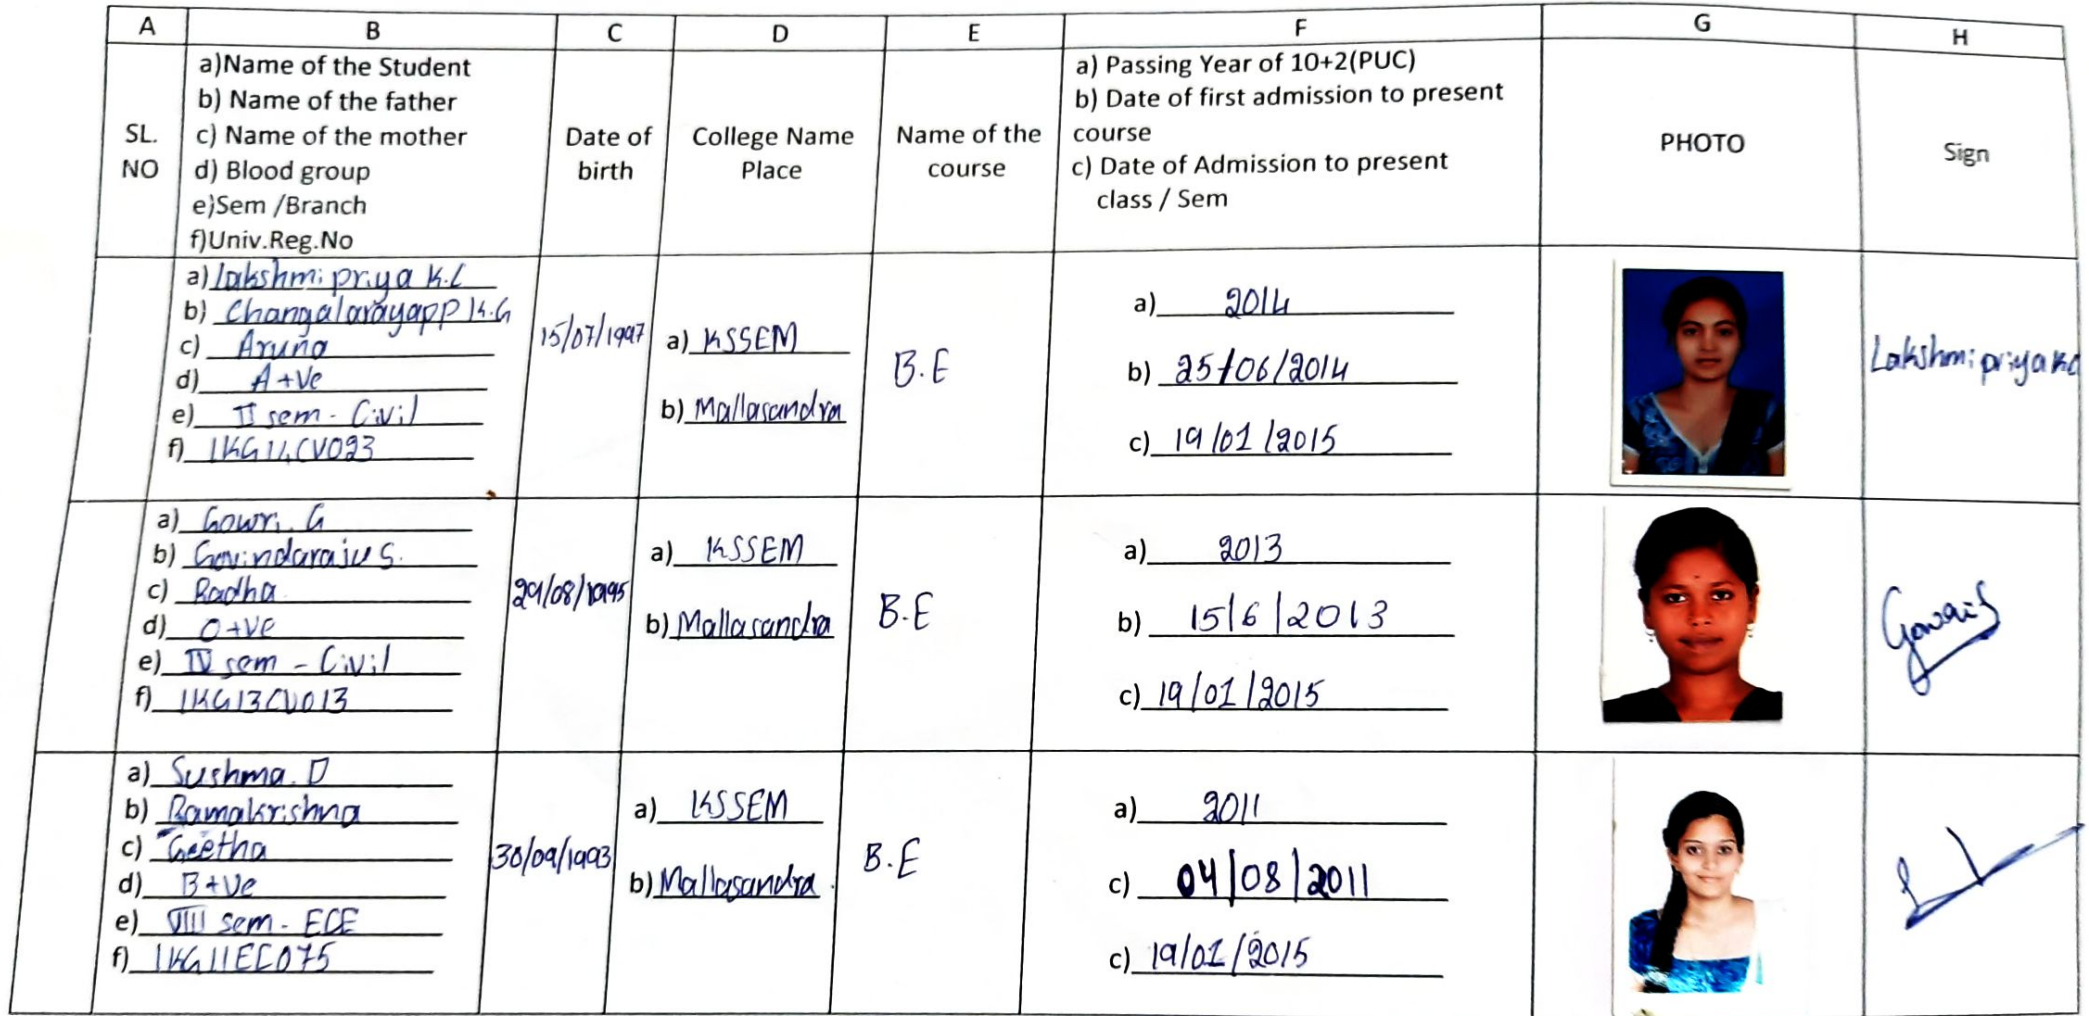 A B C D E F G H
SL. NO
a)Name of the Student
b) Name of the father
c) Name of the mother
d) Blood group
e)Sem /Branch
f)Univ.Reg.No
Date of birth
College Name
Place
Name of the course
a) Passing Year of 10+2(PUC)
b) Date of first admission to present
course
c) Date of Admission to present
class / Sem
PHOTO
Sign
a) Lakshmi priya K.C
b) Changalarayapp K.G
c) Aruna
d) A +Ve
e) II sem - Civil
f) 1KG14CV023
15/07/1997
a) KSSEM
b) Mallasandra
B.E
a) 2014
b) 25/06/2014
c) 19/01/2015
Lakshmi priya KC
a) Gowri. G
b) Govindaraju S.
c) Radha
d) O +Ve
e) IV sem - Civil
f) 1KG13CV013
29/08/1995
a) KSSEM
b) Mallasandra
B.E
a) 2013
b) 15/6/2013
c) 19/01/2015
a) Sushma. D
b) Ramakrishna
c) Geetha
d) B +Ve
e) VIII sem - ECE
f) 1KG11EC075
30/09/1993
a) KSSEM
b) Mallasandra.
B.E
a) 2011
c) 04/08/2011
c) 19/01/2015